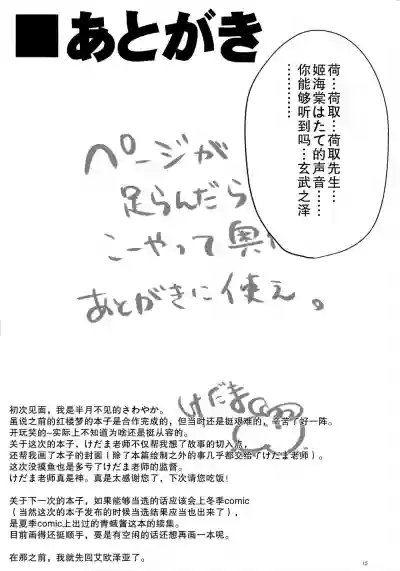 ■あとがき
荷…荷取…荷取先生…
姬海棠はたて的声音……
你能够听到吗…玄武之泽
……………
ページが
足らんだら
こーやって奥に
あとがきに使え。
けだま
初次见面，我是半月不见的さわやか。
虽说之前的红楼梦的本子是合作完成的，但当时还是挺艰难的，辛苦了好一阵。
开玩笑的~实际上不知道为啥还是挺从容的。
关于这次的本子，けだま老师不仅帮我想了故事的切入点，
还帮我画了本子的封面（除了本篇绘制之外的事几乎都交给了けだま老师）。
这次没摸鱼也是多亏了けだま老师的监督。
けだま老师真是神。真是太感谢您了，下次请您吃饭！
关于下一次的本子，如果能够当选的话应该会上冬季comic
（当然这次的本子发布的时候当选结果应当也出来了），
是夏季comic上出过的青蛾酱这本的续集。
目前画得还挺顺手，要是有空闲的话还想再画一本呢。
在那之前，我就先回艾欧泽亚了。